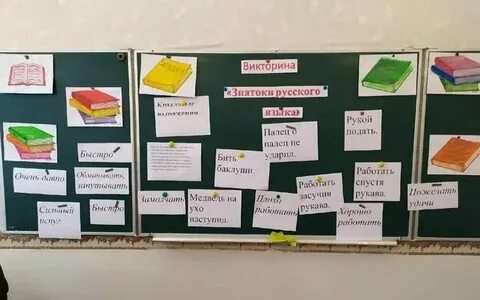 Викторина
«Знатоки русского
языка»
Крылатые
выражения
Палец о
палец не
ударил.
Рукой
подать.
Быстро
Бить
баклуши.
Работать
спустя
рукава.
Очень давно
Обманывать,
запутывать
Работать
засучив
рукава.
Пожелать
удачи
Сильный
испуг
Быстро
Замолчать
Медведь на
ухо
наступил.
Плохо
работать
Хорошо
работать